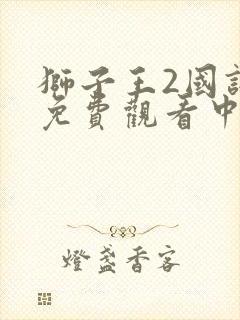 獅子王2國
免費觀看中
燈盞香客